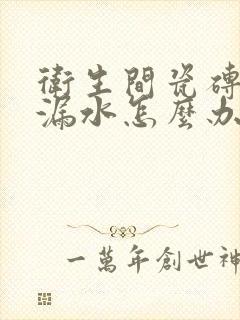 衛生間瓷磚
漏水怎麼办
一萬年創世神